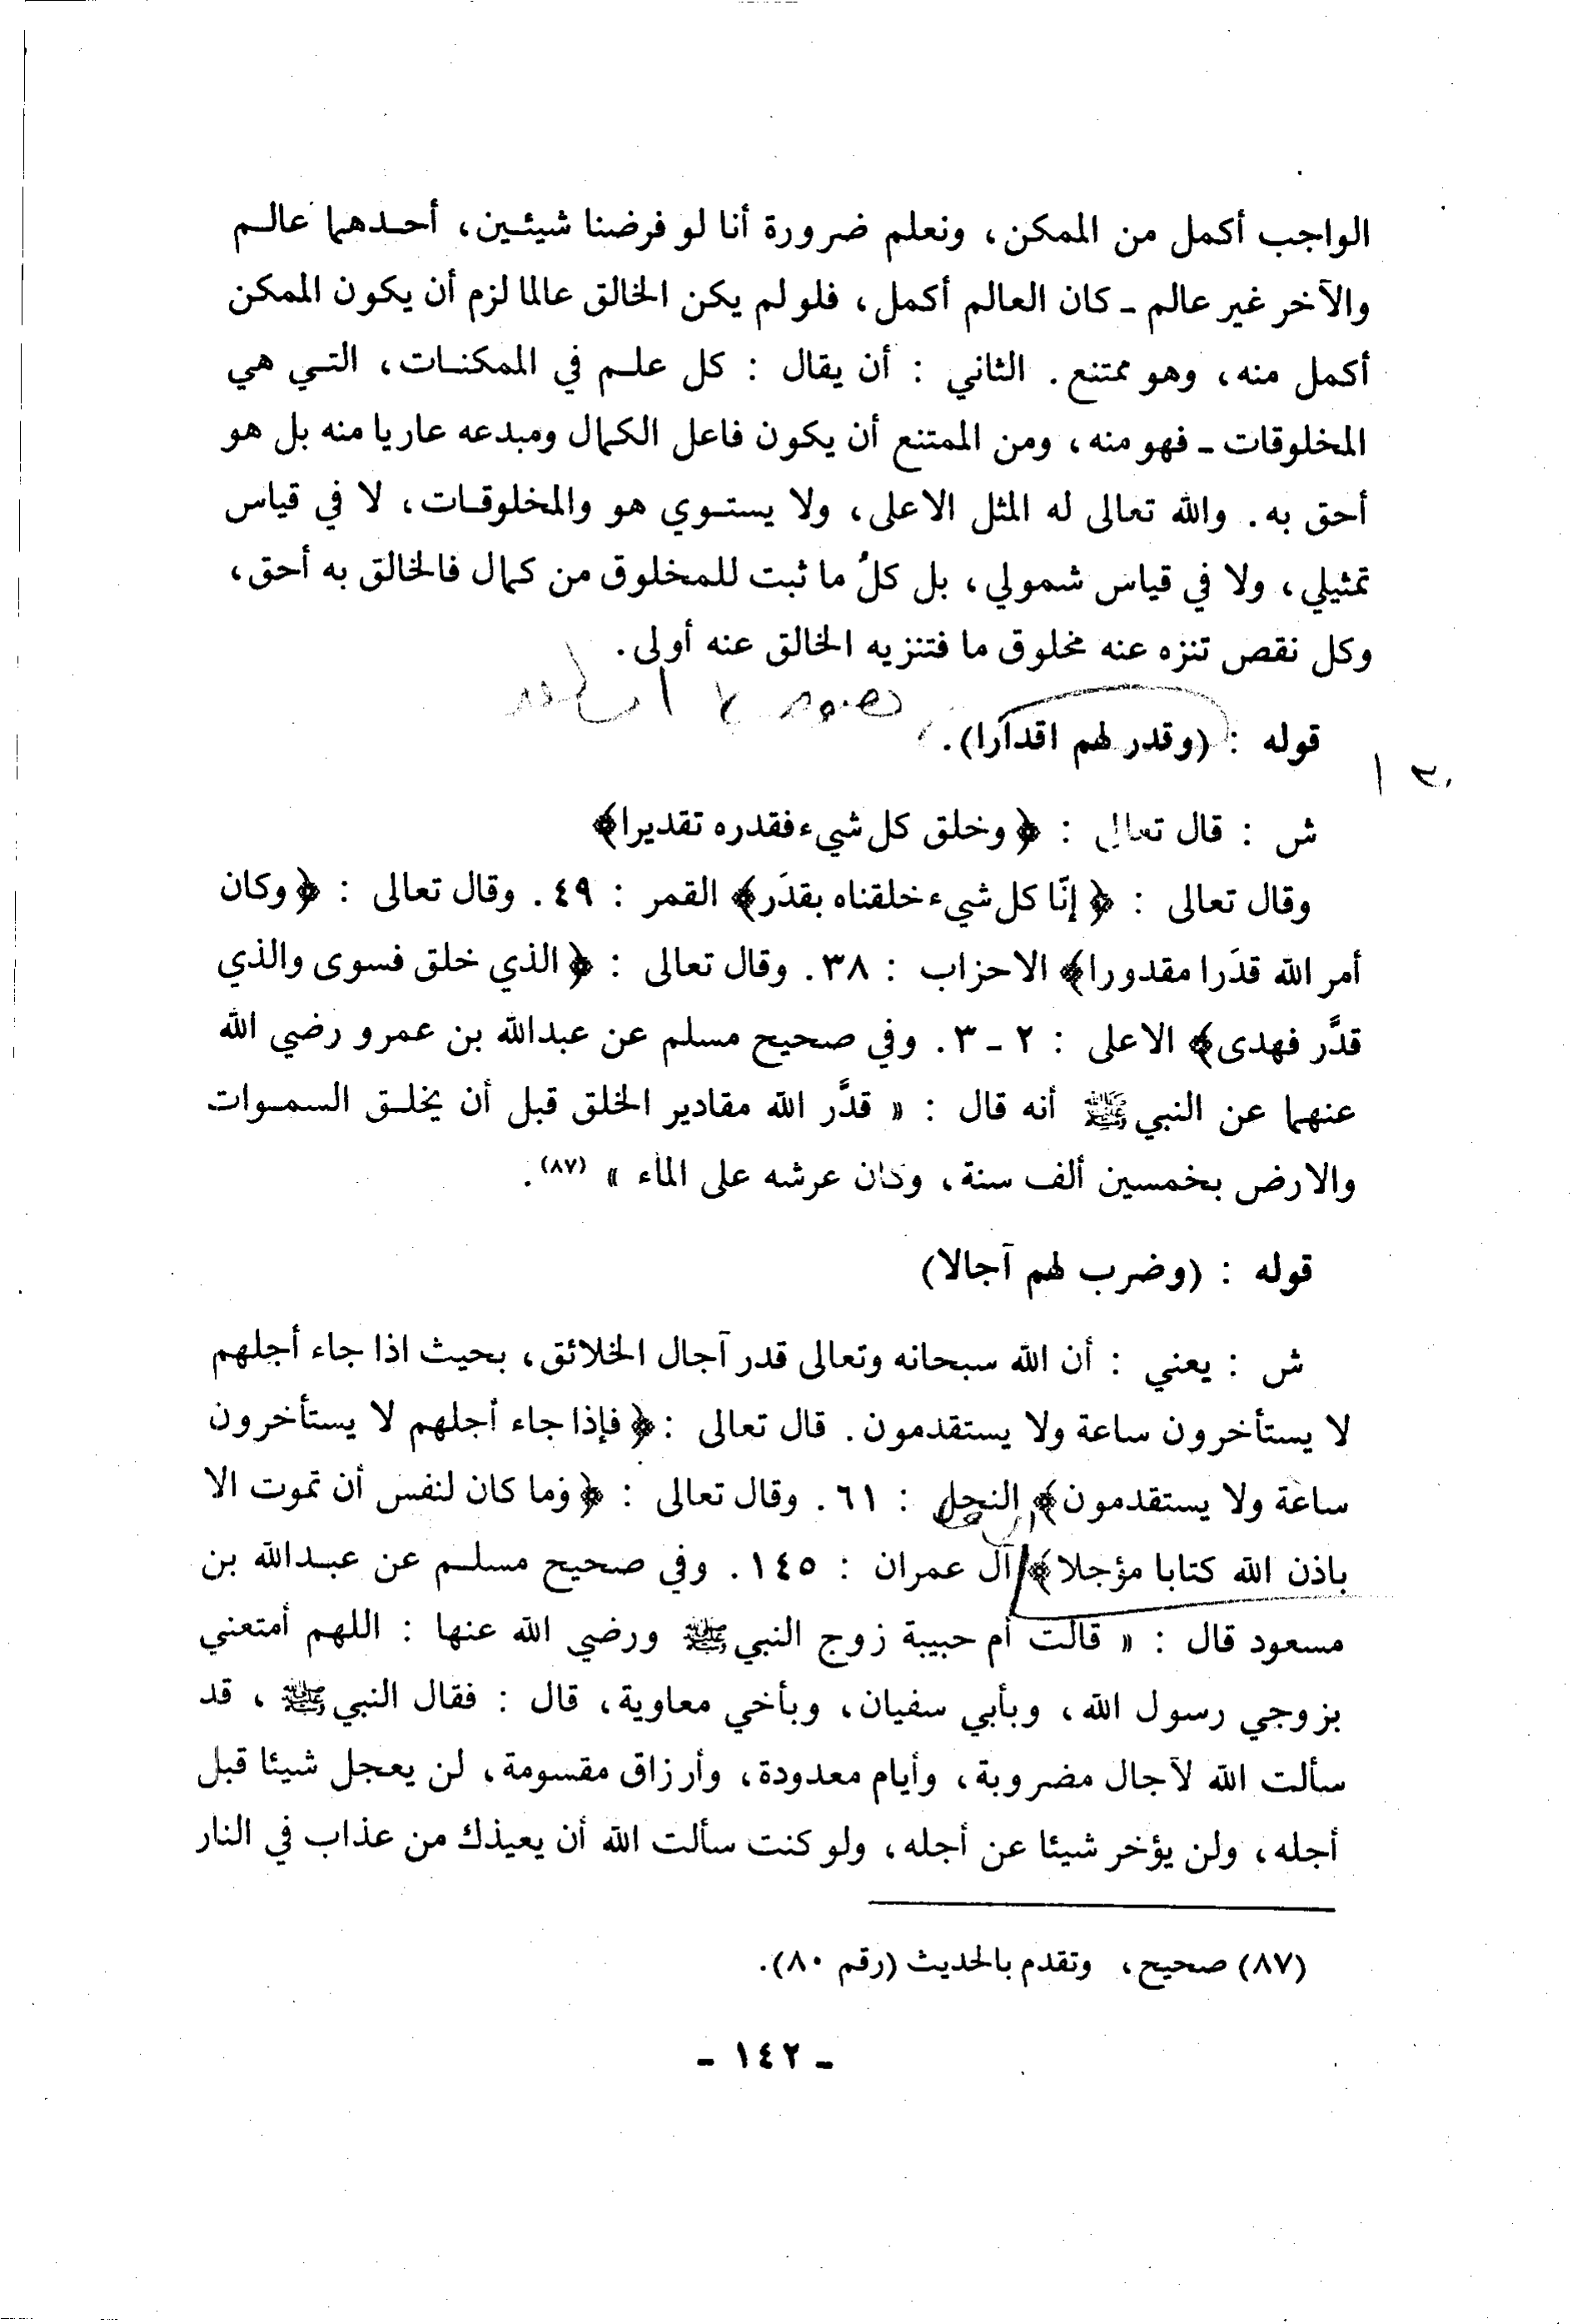 الواجب أكمل من الممكن، ونعلم ضرورة أنا لو فرضنا شيئين، أحدهما عالم
والآخر غير عالم ـ كان العالم أكمل، فلو لم يكن الخالق عالما لزم أن يكون الممكن
أكمل منه، وهو ممتنع. الثاني : أن يقال : كل علم في الممكنات، التي هي
المخلوقات ـ فهو منه، ومن الممتنع أن يكون فاعل الكمال ومبدعه عاريا منه بل هو
أحق به. والله تعالى له المثل الاعلى، ولا يستوي هو والمخلوقات، لا في قياس
تمثيلي، ولا في قياس شمولي، بل كلُ ما ثبت للمخلوق من كمال فالخالق به أحق،
وكل نقص تنزه عنه مخلوق ما فتنزيه الخالق عنه أولى.
قوله : (وقدر لهم اقدارا).
ش : قال تعالى : ﴿وخلق كل شيء فقدره تقديرا﴾
وقال تعالى : ﴿إنّا كل شيء خلقناه بقدَر﴾ القمر : ٤٩. وقال تعالى : ﴿وكان
أمر الله قدَرا مقدورا﴾ الاحزاب : ٣٨. وقال تعالى : ﴿الذي خلق فسوى والذي
قدَّر فهدى﴾ الاعلى : ٢ ـ ٣. وفي صحيح مسلم عن عبدالله بن عمرو رضي الله
عنهما عن النبي ﷺ أنه قال : « قدَّر الله مقادير الخلق قبل أن يخلق السموات
والارض بخمسين ألف سنة، وكان عرشه على الماء » (٨٧).
قوله : (وضرب لهم آجالا)
ش : يعني : أن الله سبحانه وتعالى قدر آجال الخلائق، بحيث اذا جاء أجلهم
لا يستأخرون ساعة ولا يستقدمون. قال تعالى : ﴿فإذا جاء أجلهم لا يستأخرون
ساعة ولا يستقدمون﴾ النحل : ٦١. وقال تعالى : ﴿وما كان لنفس أن تموت الا
باذن الله كتابا مؤجلا﴾ آل عمران : ١٤٥. وفي صحيح مسلم عن عبدالله بن
مسعود قال : « قالت أم حبيبة زوج النبي ﷺ ورضي الله عنها : اللهم أمتعني
بزوجي رسول الله، وبأبي سفيان، وبأخي معاوية، قال : فقال النبي ﷺ ، قد
سألت الله لآجال مضروبة، وأيام معدودة، وأرزاق مقسومة، لن يعجل شيئا قبل
أجله، ولن يؤخر شيئا عن أجله، ولو كنت سألت الله أن يعيذك من عذاب في النار
(٨٧) صحيح، وتقدم بالحديث (رقم ٨٠).
ـ ١٤٢ ـ